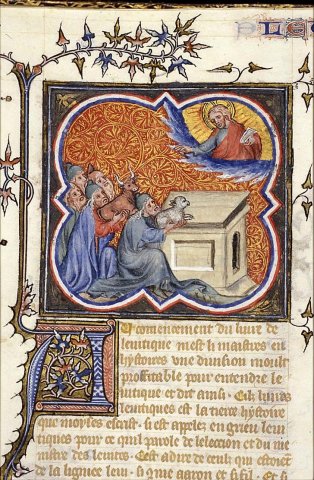 Du comencement du liure de
leuitique met li maistres en
hystoires une diuision moult
profitable pour entendre le
uitique et dit ainsi. Cilz liures
leuitiques est la tierce hystoire
que moyses escrist. si est appelez en grieu leui
tiques pour ce quil parole de leleccion et du me
nistre des leuites. Cest adire de ceulz qui estoient
de la lignee leui. si que aaron et si fil. Et si